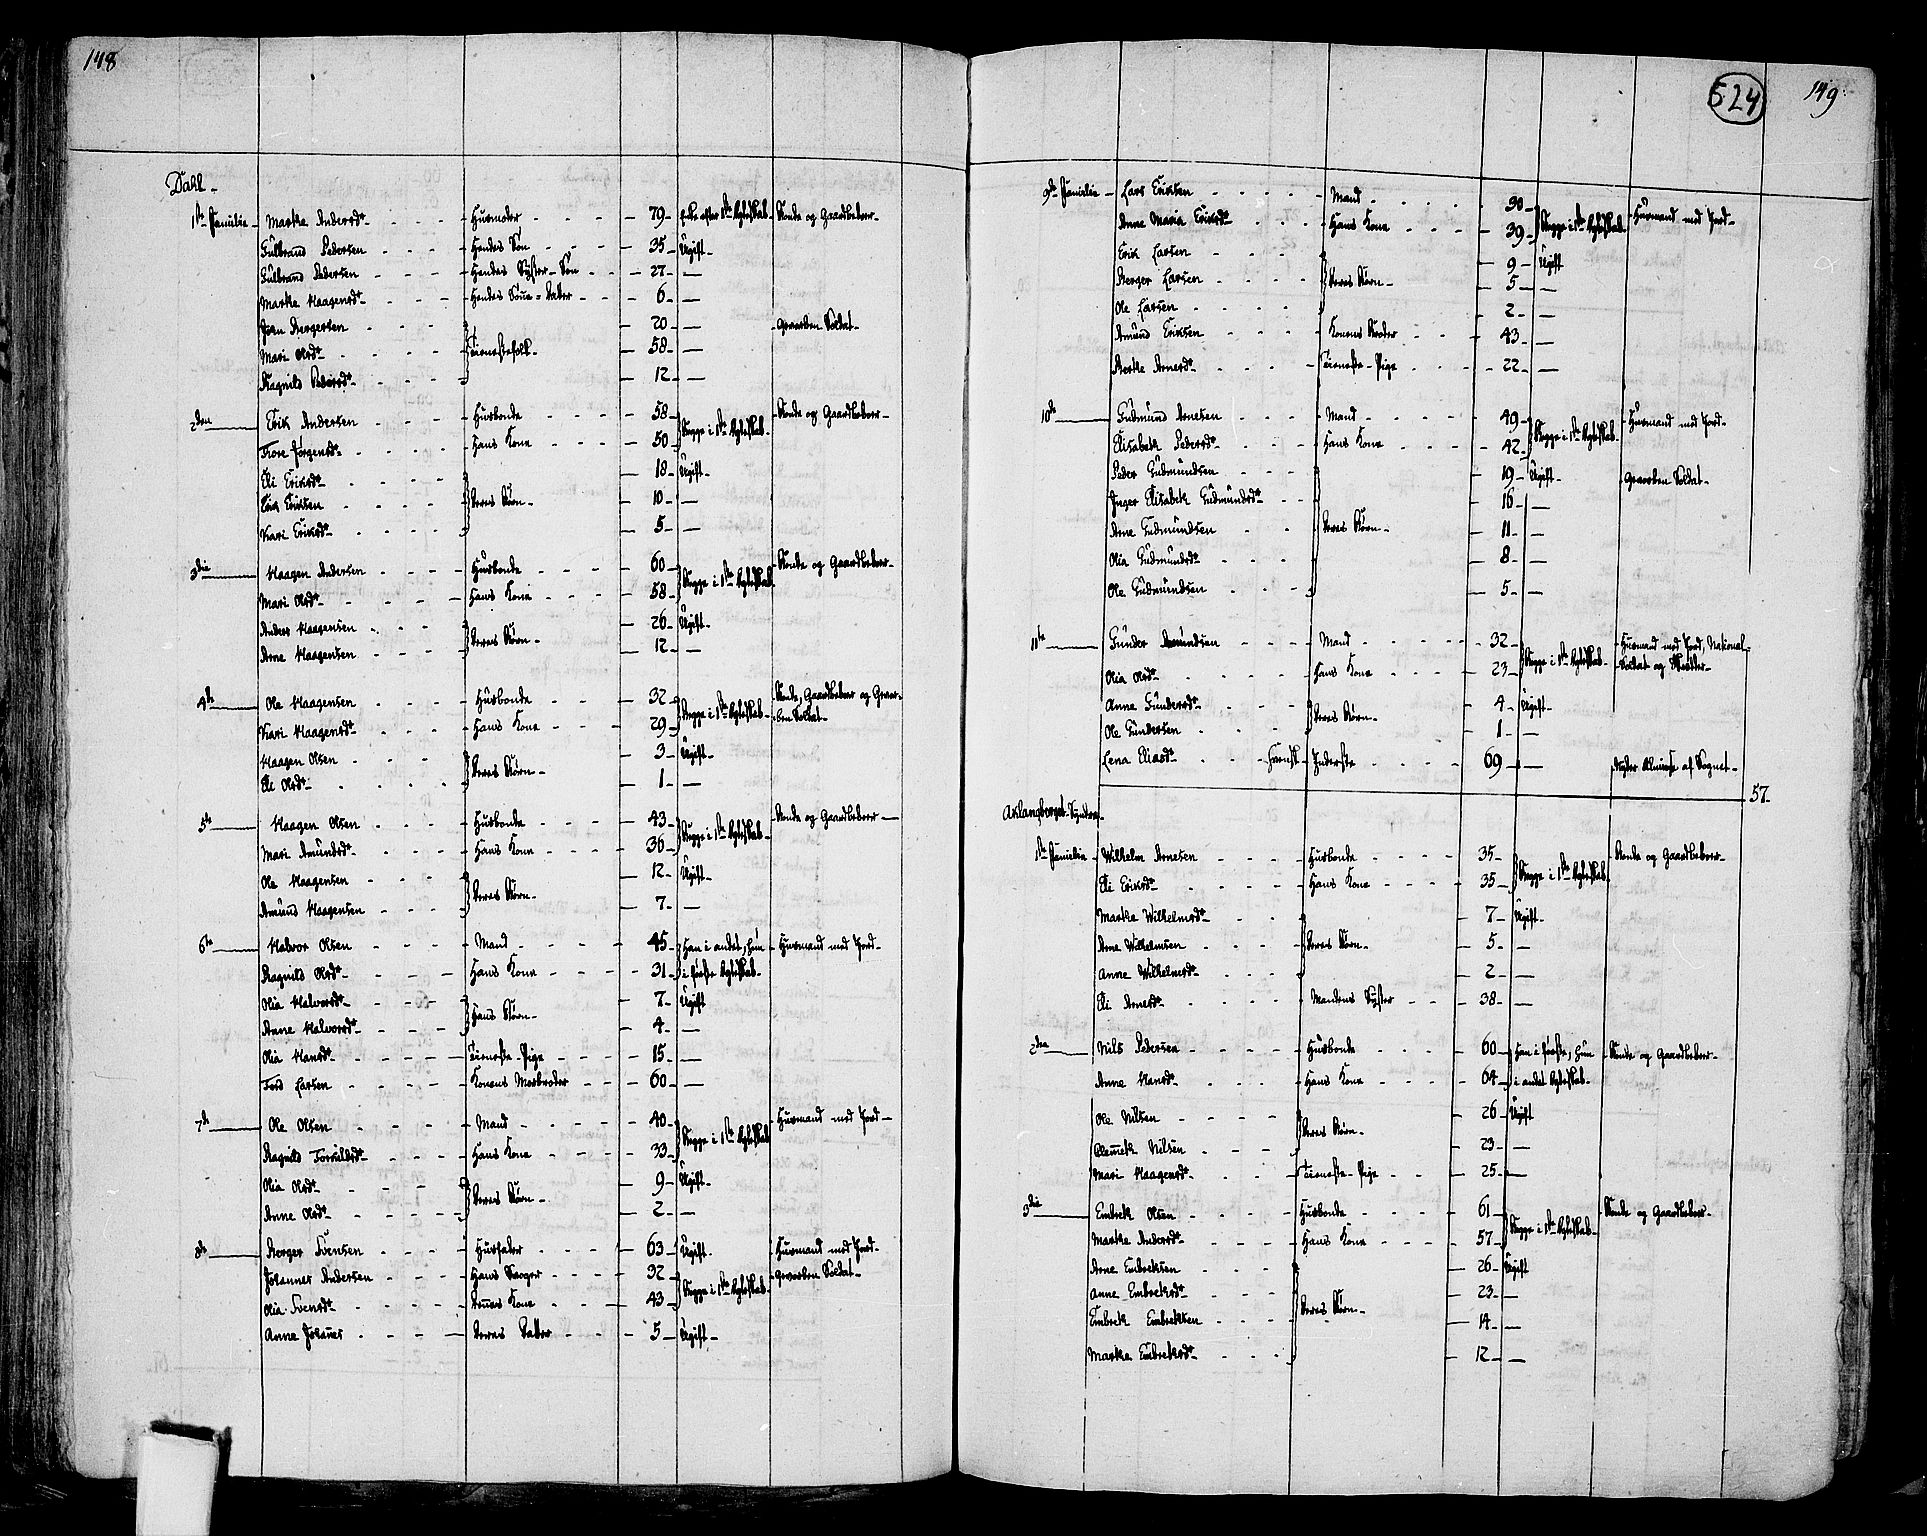 148
Dahl -
1ste Familie - Marthe Andersdt - Huusmoder - 79 - Enke efter 1ste Ægteskab - Bonde og Gaardbeboer -
Gulbrand Pedersen - Hendes Søn - 35 - Ugift -
Gulbrand Pedersen - Hendes Syster-Søn - 27 -
Marthe Haagensdt - Hendes Søne-Datter - 6 -
Jörn Bergersen - 20 - Gevorben Soldat -
Mari Olsdt - Tienestefolk - 58 -
Ragnild Pedersdt - 12 -
2den - Erik Andersen - Huusbonde - 58 - Begge i 1ste Ægteskab - Bonde og Gaardbeboer -
Tore Jörgensdt - Hans Kone - 50 -
Eli Eriksdt - 18 - Ugift -
Erik Eriksen - Deres Børn - 10 -
Kari Eriksdt - 5 -
3die - Haagen Andersen - Huusbonde - 60 - Begge i 1ste Ægteskab - Bonde og Gaardbeboer -
Mari Olsdt - Hans Kone - 58 -
Anders Haagensen - Deres Børn - 26 - Ugift -
Arne Haagensen - 12 -
4de - Ole Haagensen - Huusbonde - 32 - Begge i 1ste Ægteskab - Bonde, Gaardbeboer og Gevor-
Kari Haagensdt - Hans Kone - 29 - ben Soldat -
Haagen Olsen - Deres Børn - 3 - Ugift -
Eli Olsdt - 1 -
5te - Haagen Olsen - Huusbonde - 43 - Begge i 1ste Ægteskab - Bonde og Gaardbeboer -
Mari Amundsdt - Hans Kone - 36 -
Ole Haagensen - Deres Børn - 12 - Ugift -
Amund Haagensen - 7 -
6te - Halvor Olsen - Mand - 45 - Han i andet, hun - Huusmand med Jord -
Ragnild Olsdt - Hans Kone - 31 - i første Ægteskab -
Olia Halvorsdt - Hans Børn - 7 - Ugift
Anne Halvorsdt - 4 -
Olia Hansdt - Tieneste-Pige - 15 -
Tord Larsen - Konens Morbroder - 60 -
7de - Ole Olsen - Mand - 40 - Begge i 1ste Ægteskab - Huusmand med Jord -
Ragnild Torkildsdt - Hans Kone - 33 -
Olia Olsdt - Deres Børn - 9 - Ugift -
Anne Olsdt - 2 -
8de - Berger Svensen - Huusfader - 63 - Ugift - Huusmand med Jord -
Johannes Andersen - Hans Svoger - 32 - Begge i 1ste Ægteskab - Gevorben Soldat -
Olia Svensdt - Dennes Kone - 43 -
Anne Johannes - Deres Datter - 5 - Ugift -
524
149
9de Familie - Lars Eriksen - Mand - 30 - Begge i 1ste Ægteskab - Huusmand med Jord -
Anne Maria Eriksdt - Hans Kone - 39 -
Erik Larsen - 9 - Ugift
Berger Larsen - Deres Børn - 5 -
Ole Larsen - 2 -
Amund Eriksen - Konens Broder - 43 -
Berthe Arnesdt - Tieneste-Pige - 22 -
10de - Gudmund Arnesen - Mand - 49 - Begge i 1ste Ægteskab - Huusmand med Jord -
Elisabeth Pedersdt - Hans Kone - 42 -
Peder Gudmundsen - 19 - Ugift - Gevorben Soldat -
Inger Elisabeth Gudmundsdt - 16 -
Arne Gudmundsen - Deres Børn - 11 -
Olia Gudmundsdt - 8 -
Ole Gudmundsen - 5 -
11te - Gunder Amundsen - Mand - 32 - Begge i 1ste Ægteskab - Huusmand med Jord, National-
Olia Olsdt - Hans Kone - 23 - Soldat og Skrædder -
Anne Gundersdt - Deres Børn - 4 - Ugift -
Ole Gundersen - 1 -
Lena Eliasdt - Svensk - Inderste - 69 - Nyder Almisse af Sognet -
57 -
Aslangberget Søndre -
1ste Familie - Wilhelm Arnesen - Huusbonde - 35 - Begge i 1ste Ægteskab - Bonde og Gaardbeboer -
Eli Eriksdt - Hans Kone - 35 -
Marthe Wilhelmsdt - 7 - Ugift -
Arne Wilhelmsen - Deres Børn - 5 -
Anne Wilhelmsdt - 2 -
Eli Arnesdt - Mandens Syster - 38 -
2den - Nils Pedersen - Huusbonde - 60 - Han i første, hun - Bonde og Gaardbeboer -
Anne Hansdt - Hans Kone - 64 - i andet Ægteskab -
Ole Nilsen - Deres Børn - 26 - Ugift
Clemmet Nilsen - 23 -
Mari Haagensdt - Tieneste-Pige - 25 -
3die - Embrek Olsen - Huusbonde - 61 - Begge i 1ste Ægteskab - Bonde og Gaardbeboer -
Marthe Andersdt - Hans Kone - 57 -
Arne Embreksen - 26 - Ugift
Anne Embreksdt - Deres Børn - 23 -
Embrek Embreksen - 14 -
Marthe Embreksdt - 12 -